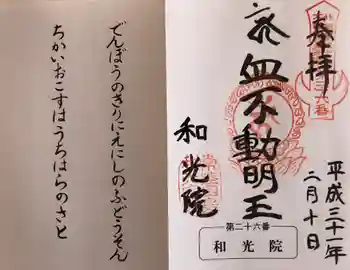 奉拝
平成三十一年
二月十日
不動明王
和光院
第二十六番
和光院
でんぽうのきりにえにしのふどうそん
ちかいおこすはうちはらのさと